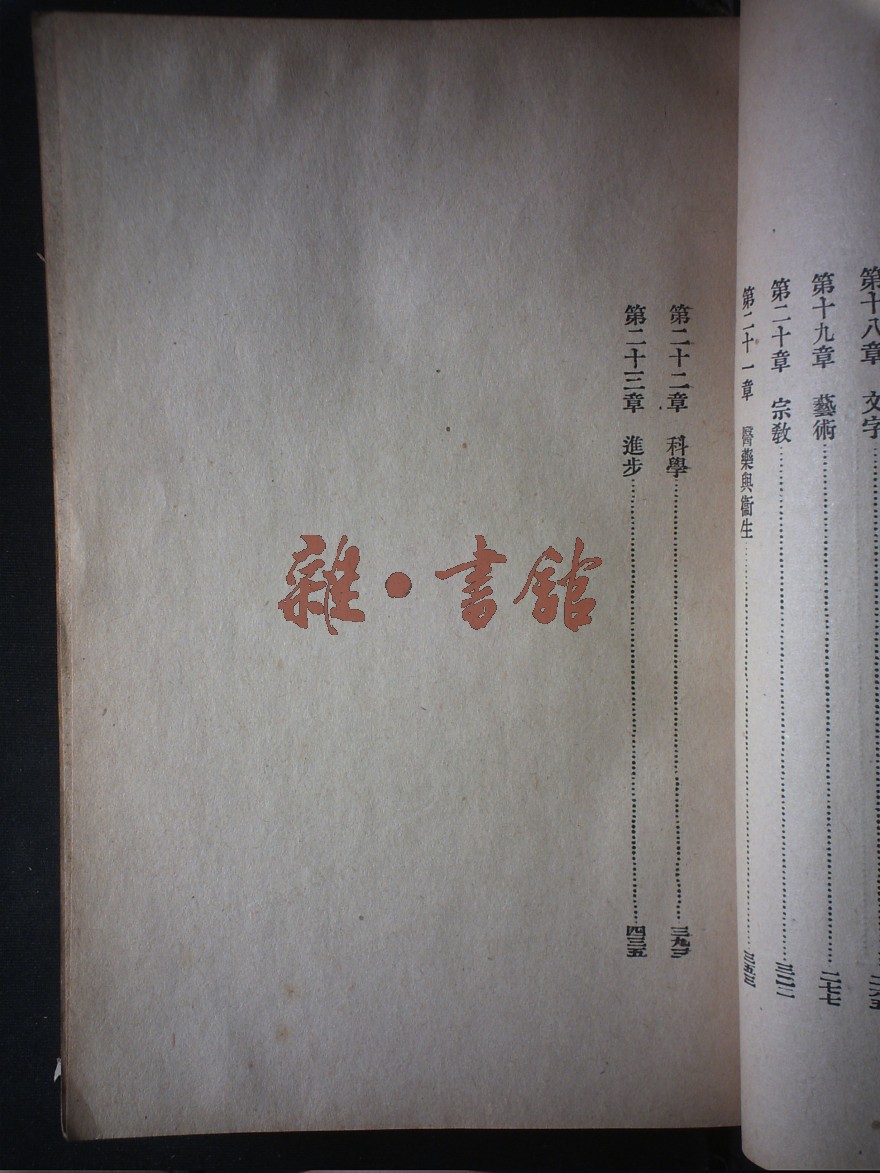 第十八章　文字……二六五
第十九章　藝術……二七七
第二十章　宗教……三二三
第二十一章　醫藥與衞生……三五三
第二十二章　科學……三九三
第二十三章　進步……四三五
雜・書館